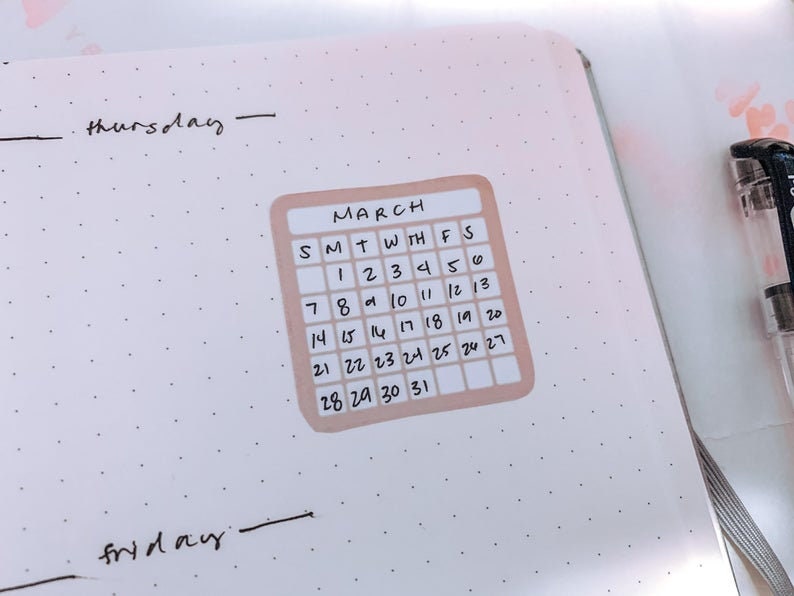 thursday
MARCH
S M T W TH F S
1 2 3 4 5 6
7 8 9 10 11 12 13
14 15 16 17 18 19 20
21 22 23 24 25 26 27
28 29 30 31
friday